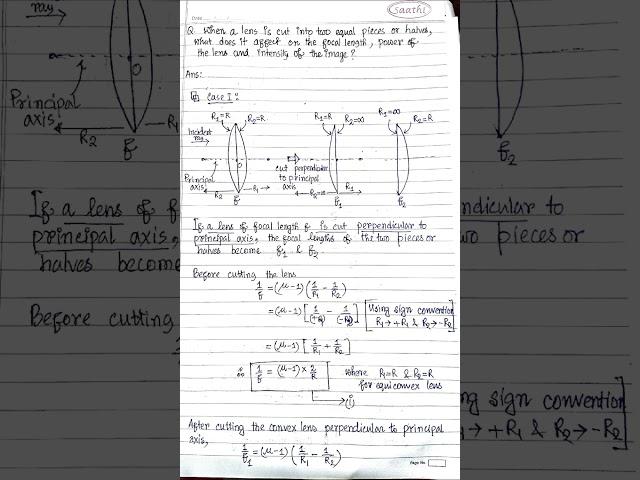 Saathi
Date
Q. When a lens is cut into two equal pieces or halves,
what does it affect on the focal length, power of
the lens and intensity of the image?
Ans:
Case I:
R₁=R R₂=R R₁=R R₂=∞ R₁=∞ R₂=R
Incident
ray
O
cut perpendicular
to principal
axis
Principal
axis
R₂ f R₁ R₂=∞ f₁ R₁ f₂
If a lens of focal length f is cut perpendicular to
principal axis, the focal lengths of the two pieces or
halves become f₁ & f₂.
Before cutting the lens
1/f = (μ-1) (1/R₁ - 1/R₂)
= (μ-1) [1/(+R₁) - 1/(-R₂)] [Using sign convention
R₁→+R₁ & R₂→-R₂]
= (μ-1) [1/R₁ + 1/R₂]
∴ 1/f = (μ-1) × 2/R where R₁=R & R₂=R
for equiconvex lens
→ (i)
After cutting the convex lens perpendicular to principal
axis,
1/f₁ = (μ-1) (1/R₁ - 1/R₂)
Page No
ray
O
Principal
axis
R₂ f R₁
If a lens of f
principal axis,
halves become
Before cutting
f₂
ndicular to
wo pieces or
ng sign convention
→+R₁ & R₂→-R₂